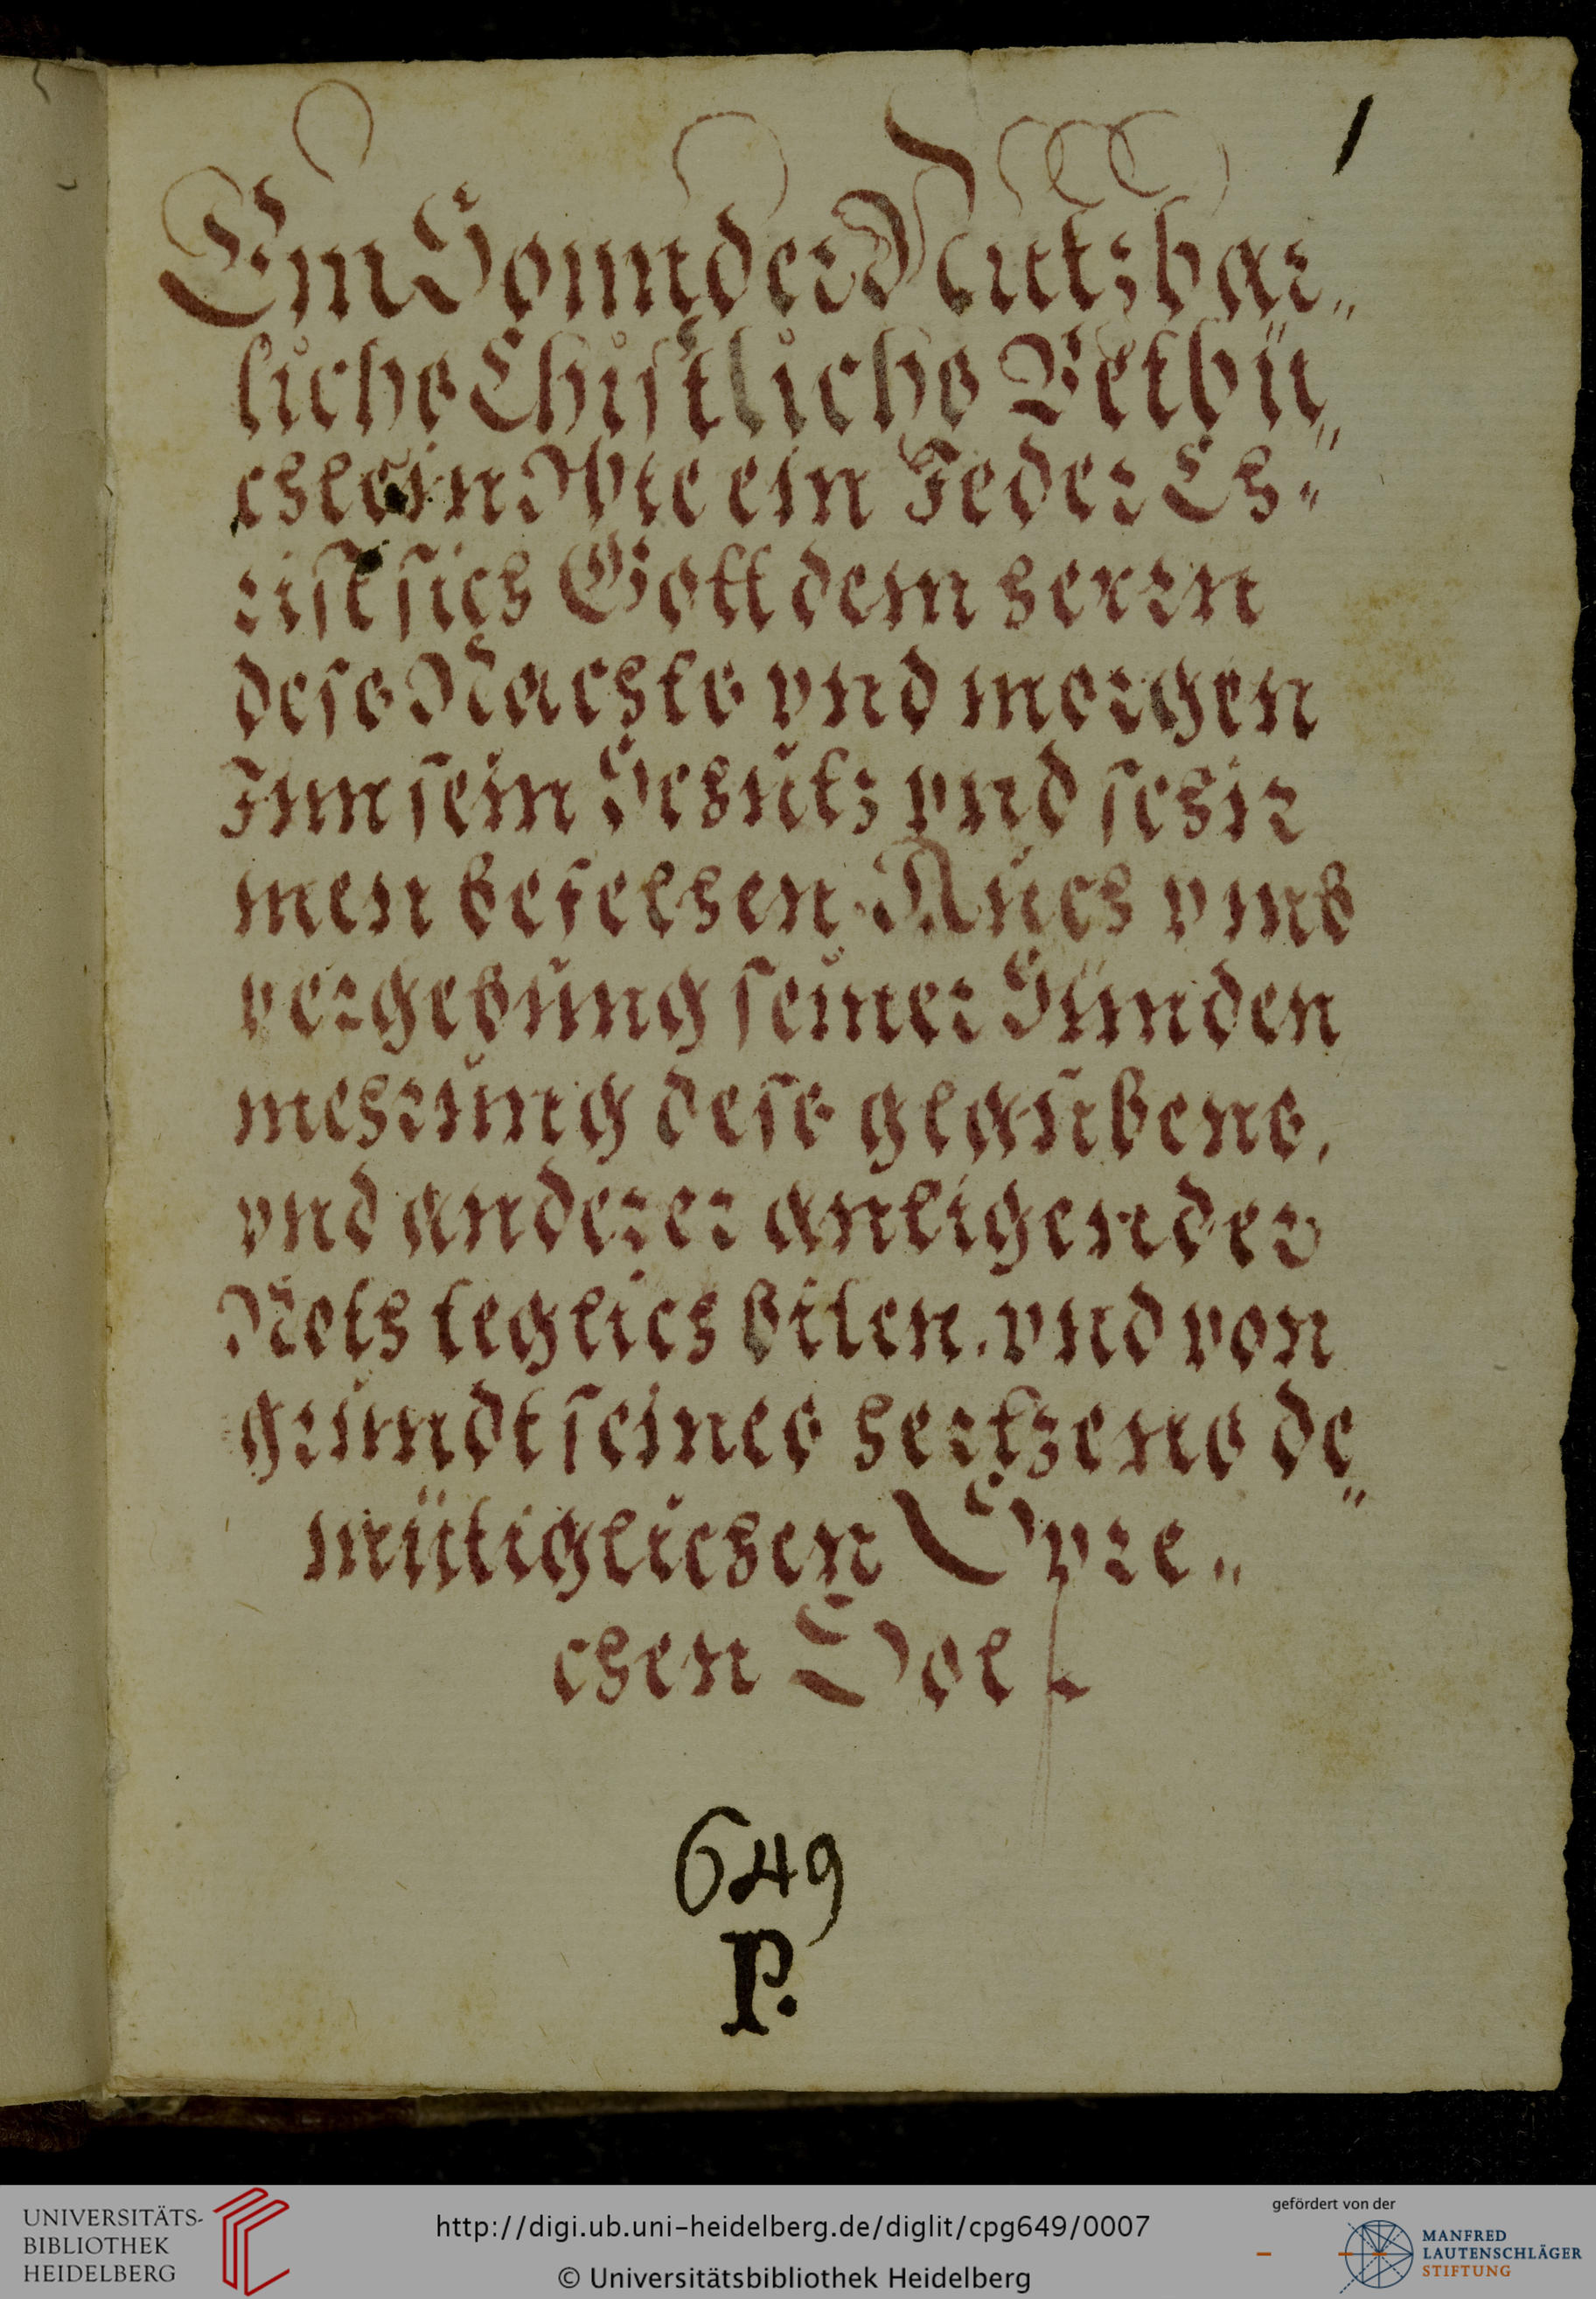 1
Ein Sonnder Nutzbar„
liche Christliche Betbü„
chlein Wie ein Jeder Ch„
rist sich Gott dem herrn
dess Nachts vnd morgen
Inn sein Schutz vnd schir
men befelhen. Auch vmb
vergebung seiner Sünden
mehrung dess glaubens,
vnd anderer anligender
Noth teglich biten. vnd von
grundt seines hertzens de„
mütiglichen Spre„
chen Sol
649
P.
UNIVERSITÄTS-
BIBLIOTHEK
HEIDELBERG
http://digi.ub.uni-heidelberg.de/diglit/cpg649/0007
© Universitätsbibliothek Heidelberg
gefördert von der
MANFRED
LAUTENSCHLÄGER
STIFTUNG